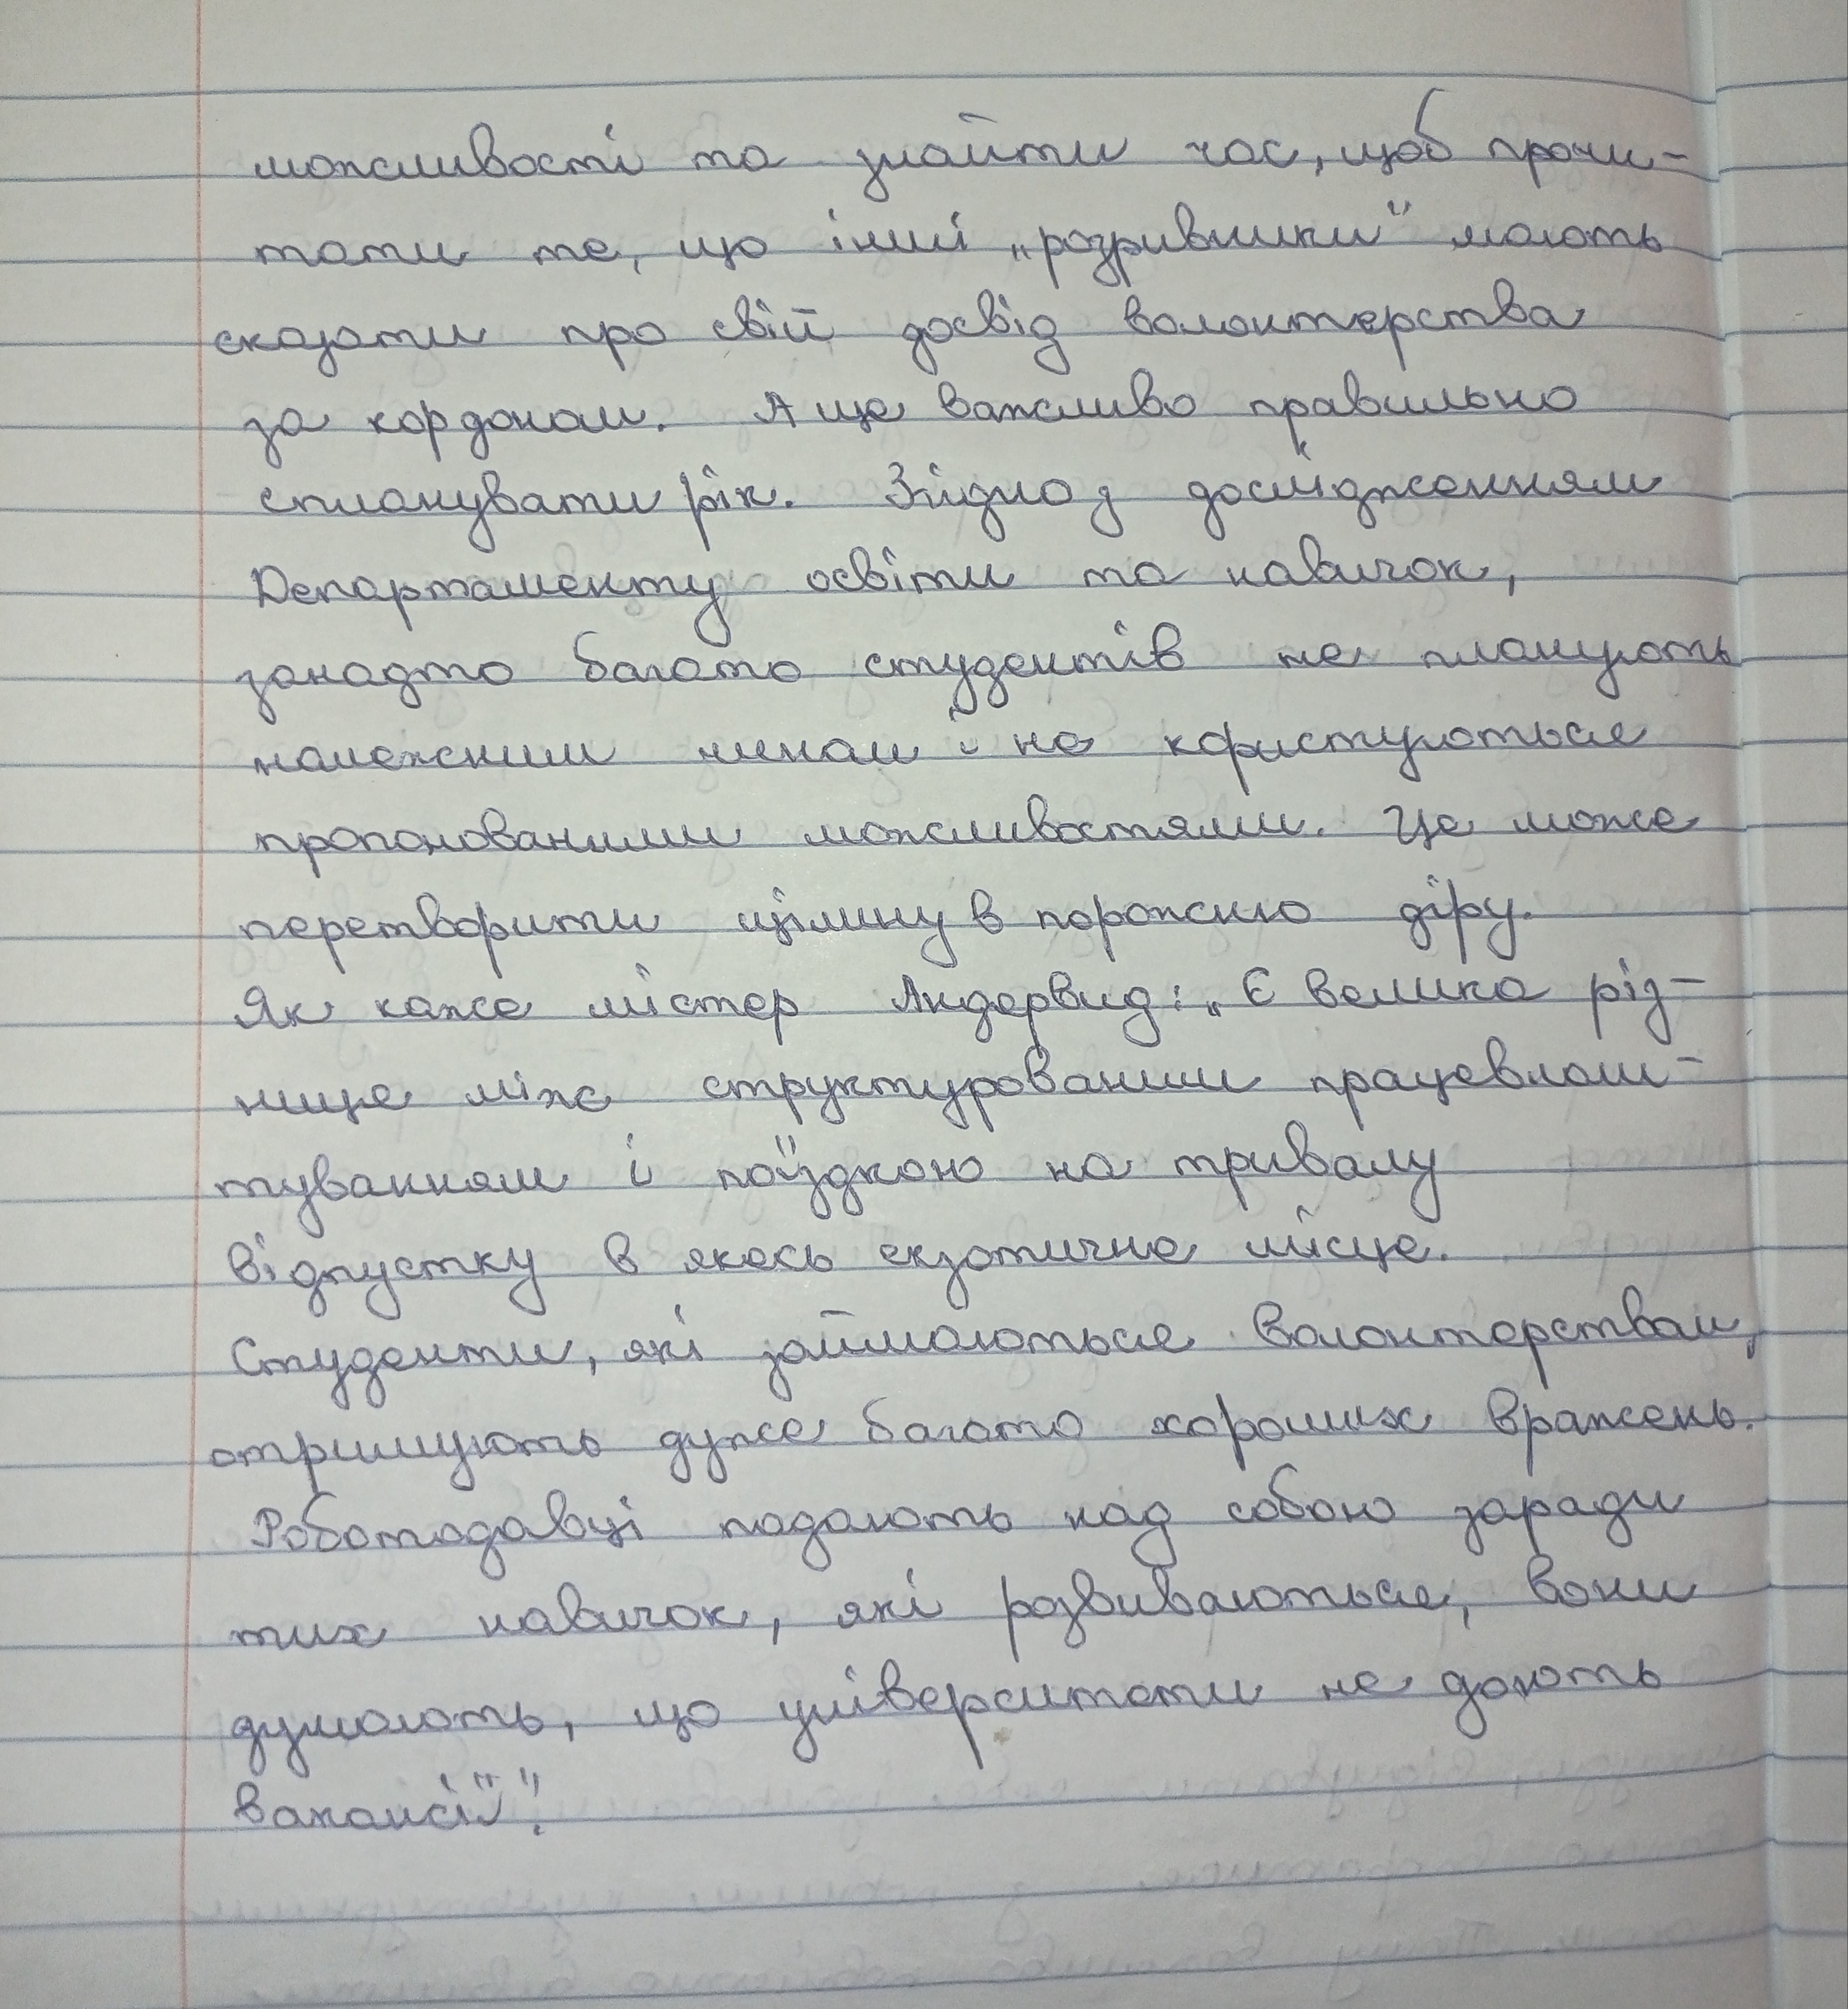 можливості та знайти час, щоб прочи-
тати те, що інші „розривники" мають
сказати про свій досвід волонтерства
за кордоном. А ще важливо правильно
спланувати рік. Згідно з дослідженням
Департаменту освіти та навичок,
занадто багато студентів не планують
належним чином і не користуються
пропонованими можливостями. Це може
перетворити щілину в порожню діру.
Як каже містер Андервид: „Є велика різ-
ниця між структурованим працевлаш-
туванням і поїздкою на тривалу
відпустку в якесь екзотичне місце.
Студенти, які займаються волонтерством,
отримують дуже багато хороших вражень.
Роботодавці падають над собою заради
тих навичок, які розвиваються, вони
думають, що університети не дають
вакансії".